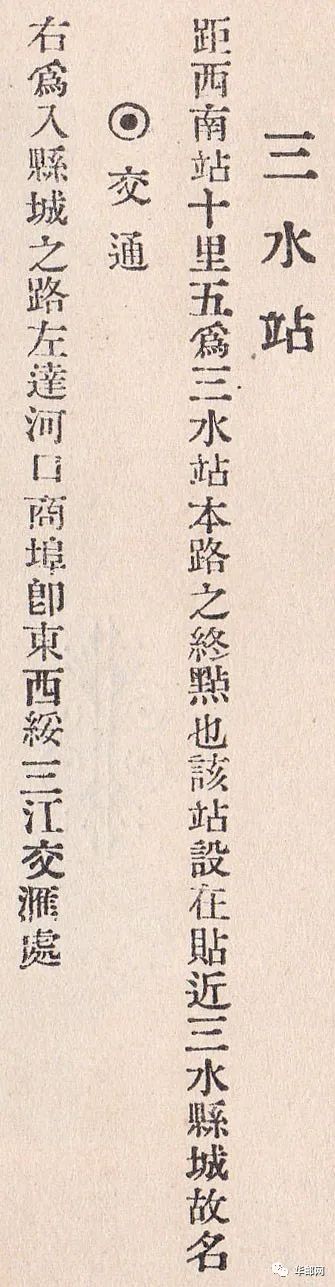 三水站
距西南站十里五爲三水站本路之終點也該站設在貼近三水縣城故名
◉交通
右爲入縣城之路左達河口商埠卽東西綏三江交滙處
华邮网